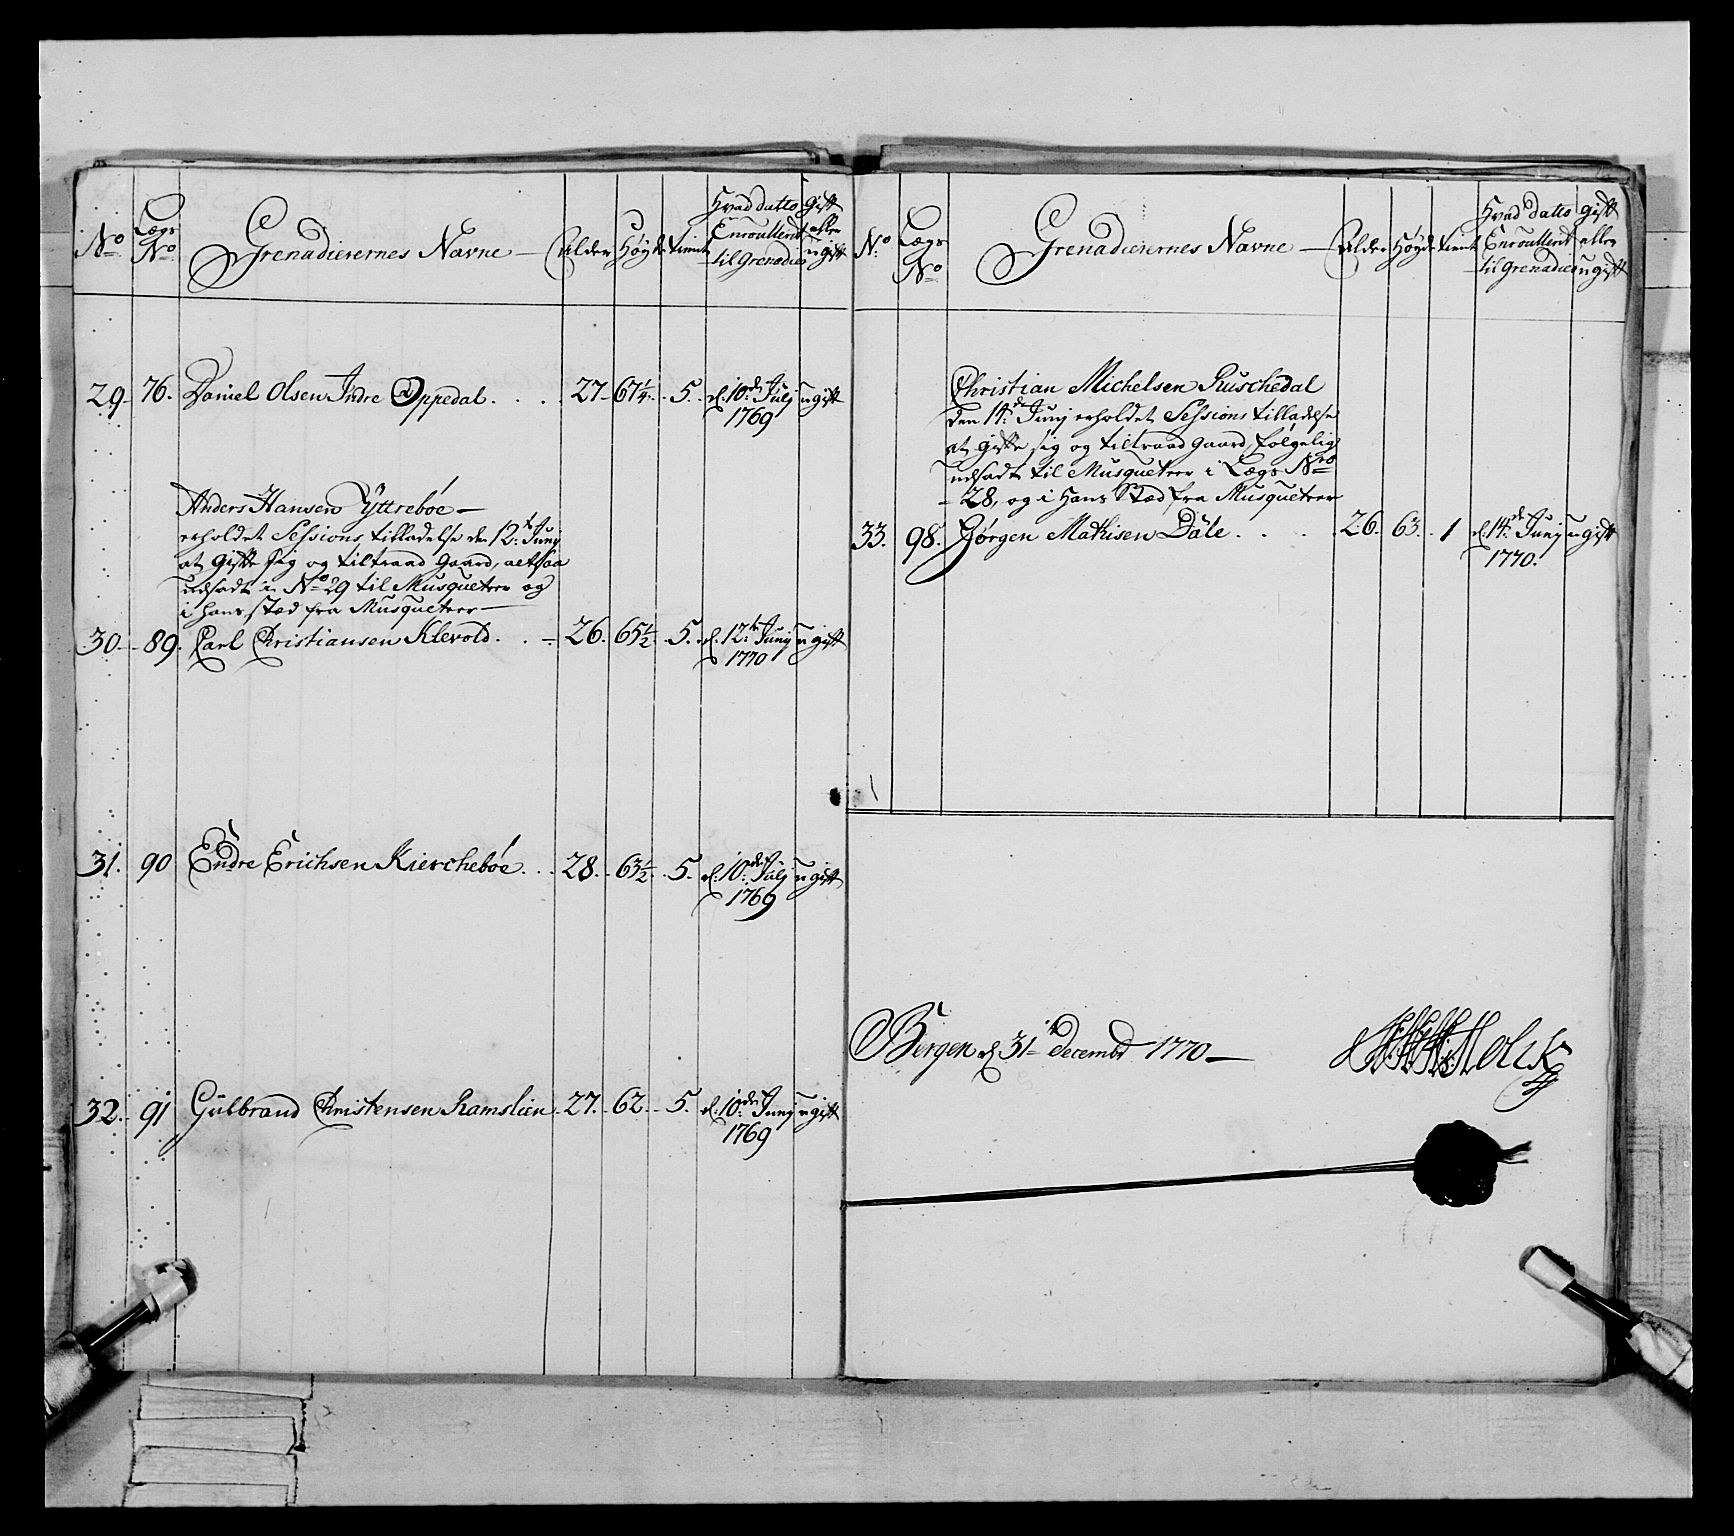 No Lægs No Grenadierernes Navne Alder Høyde tient Hvad datto Enroullerit til Grenadier gift eller ugift
29 76. Daniel Olsen Indre Oppedal. 27. 67¼. 5. d. 10de July 1769 ugift
Anders Hansen Yttrebøe
erholdet Sessions tilladelse den 12te Junj
at gifte sig og tiltræde Gaard, altsaa
udsadt i No 29 til Musqueteer og
i hans sted fra Musqueteer
30. 89. Carl Christiansen Klevold. 26. 65½. 5. d. 12te Junj 1770 ugift
31. 90 Endre Erichsen Kierchebøe. 28. 63½. 5. d. 10de July 1769 ugift
32. 91 Gulbrand Christensen Ramslien 27. 62. 5. d. 10de Junj 1769 ugift
No Lægs No Grenadierernes Navne Alder Høyde tient Hvad datto Enroullerit til Grenadier gift eller ugift
Christian Michelsen Ruschedal
den 14de Junj erholdet Sessions tilladelse
at gifte sig og tiltraad gaard, følgelig
udsadt til Musqueteer i Lægs Nro
28, og i hans Sted fra Musqueteer
33. 98. Jørgen Mathisen Dale. 26. 63. 1 d. 14de Junj 1770. ugift
Bergen d 31te Decembr 1770
Holck